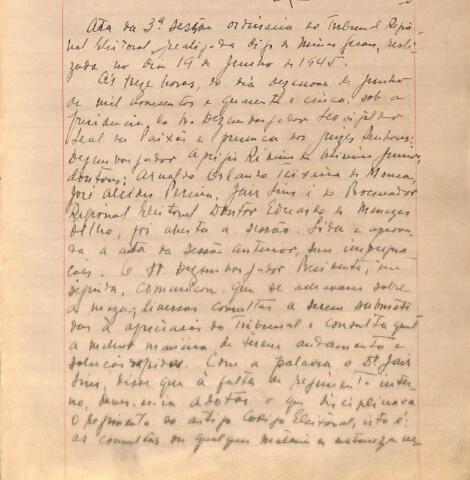 Ata da 3ª sessão ordinaria do Tribunal Regio-
nal Eleitoral, realizada digo de Minas Gerais, reali-
zada no dia 19 de Junho de 1945.
Ás treze horas, do dia dezenove de Junho
de mil novecentos e quarenta e cinco, sob a
presidencia, do Sr. Dezembargador Leovigildo
Leal da Paixão e presença dos juizes Senhores:
Dezembargador Aprigio Ribeiro de Oliveira Junior,
doutores: Arnaldo Orlando Teixeira de Moura,
José Alcides Pereira, Jair Lins e do Procurador
Regional Eleitoral Doutor Eduardo de Menezes
Filho, foi aberta a sessão. Lida e aprova-
da a ata da sessão anterior, sem impugna-
ções. O Sr. Dezembargador Presidente, em
seguida, comunicou que se achavam sobre
a meza, diversas consultas a serem submeti-
das á apreciação do Tribunal e consulta qual
a melhor maneira de serem andamento e
solução rapidas. Com a palavra o Dr. Jair
Lins, disse que á falta de regimento inter-
no, dever-se-ia adotar o que disciplinava
o Regimento do antigo Codigo Eleitoral, isto é:
as consultas ou qualquer materia de natureza